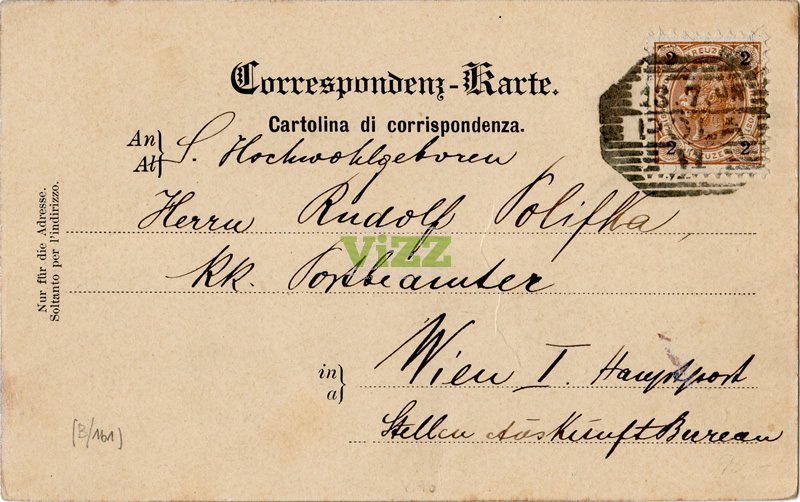 Correspondenz-Karte.
Cartolina di corrispondenza.
An
Al
S. Hochwohlgeboren
Herrn Rudolf Polifka,
ViZZ
kk. Postbeamter
in
a
Wien I. Hauptpost
Stellen Auskunft Bureau
Nur für die Adresse.
Soltanto per l'indirizzo.
[B/161]
2 KREUZER 2
2 KREUZER 2